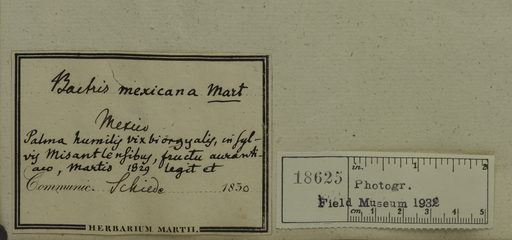 Bactris mexicana Mart
Mexico
Palma humilis vix biorgyalis, in syl-
vis Misantlensibus, fructu auranti-
aco, Martio 1829 legit et
Communic. Schiede 1830
HERBARIUM MARTII.
18625
in. 1 2
Photogr.
Field Museum 1932
cm. 1 2 3 4 5